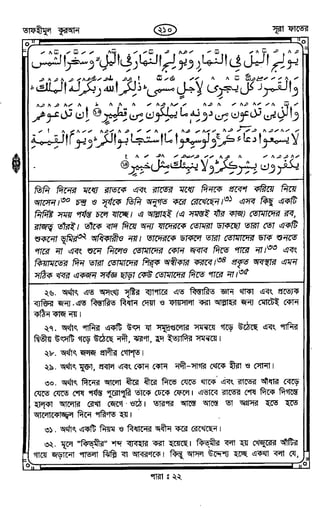 তাফহীমুল কুরআন
২১০
সূরা ফাতের
يُوْلِجُ الَّيْلَ فِى النَّهَارِ وَيُوْلِجُ النَّهَارَ فِى الَّيْلِ وَسَخَّرَ الشَّمْسَ
وَالْقَمَرَ كُلٌّ يَّجْرِىْ لِاَجَلٍ مُّسَمًّى ذٰلِكُمُ اللّٰهُ رَبُّكُمْ لَهُ الْمُلْكُ
وَالَّذِيْنَ تَدْعُوْنَ مِنْ دُوْنِهٖ مَا يَمْلِكُوْنَ مِنْ قِطْمِيْرٍ اِنْ تَدْعُوْهُمْ
لَا يَسْمَعُوْا دُعَآءَكُمْ وَلَوْ سَمِعُوْا مَا اسْتَجَابُوْا لَكُمْ وَيَوْمَ الْقِيٰمَةِ
يَكْفُرُوْنَ بِشِرْكِكُمْ وَلَا يُنَبِّئُكَ مِثْلُ خَبِيْرٍ
তিনি দিনের মধ্যে রাতকে এবং রাতের মধ্যে দিনকে প্রবেশ করিয়ে নিয়ে
আসেন।৩০ চন্দ্র ও সূর্যকে তিনি অনুগত করে রেখেছেন।৩১ এসব কিছু একটি
নির্দিষ্ট সময় পর্যন্ত চলে যাচ্ছে। এ আল্লাহই (এ সমস্তই যাঁর কাজ) তোমাদের রব,
রাজত্ব তাঁরই। তাঁকে বাদ দিয়ে অন্য যাদেরকে তোমরা ডাকছো তারা তো একটি
শুকনো ভূমির৩২ অধিকারীও নয়। তাদেরকে ডাকলে তারা তোমাদের ডাক শুনতে
পারে না এবং শুনে নিলেও তোমাদের কোন জবাব দিতে পারে না।৩৩ এবং
কিয়ামতের দিন তারা তোমাদের শির্‌ক অস্বীকার করবে।৩৪ প্রকৃত অবস্থার এমন
সঠিক খবর একজন সর্বজ্ঞ ছাড়া কেউ তোমাদের দিতে পারে না।৩৫
২৬. অর্থাৎ এত অসংখ্য সৃষ্টির ব্যাপারে এত বিস্তারিত জ্ঞান থাকা এবং প্রত্যেক
ব্যক্তির জন্য এত বিস্তারিত বিধান দেয়া ও ফায়সালা করা আল্লাহর জন্য মোটেই কোন
কঠিন কাজ নয়।
২৭. অর্থাৎ পানির একটি উৎস যা সমুদ্রগুলোর সমন্বয়ে গড়ে উঠেছে এবং পানির
দ্বিতীয় উৎসটি গড়ে উঠেছে নদী, ঝরণা, হ্রদ ইত্যাদির সমন্বয়ে।
২৮. অর্থাৎ জলজ প্রাণীর গোশ্‌ত।
২৯. অর্থাৎ মুক্তা, প্রবাল এবং কোন কোন নদী-সাগর থেকে হীরা ও সোনা।
৩০. অর্থাৎ দিনের আলো ধীরে ধীরে নিভে যেতে থাকে এবং রাতের আঁধার বেড়ে
যেতে যেতে শেষ পর্যন্ত পুরোপুরি তাকে ঢেকে ফেলে। এভাবে রাতের শেষ দিকে দিগন্তে
হাল্‌কা আলোর রেখা জেগে ওঠে। তারপর আস্তে আস্তে তা অগ্রসর হতে হতে
আলোকোজ্জ্বল দিনে পরিণত হয়।
৩১. অর্থাৎ একটি নিয়ম ও বিধানের অধীন করে রেখেছেন।
৩২. মূলে "কিত্‌মীর" শব্দ ব্যবহার করা হয়েছে। কিত্‌মীর বলা হয় খেজুরের আঁটির
গায়ে জড়ানো পাতলা ঝিল্লি বা আবরণকে। কিন্তু আসল উদ্দেশ্য হচ্ছে একথা বলা যে,
পারা : ২২